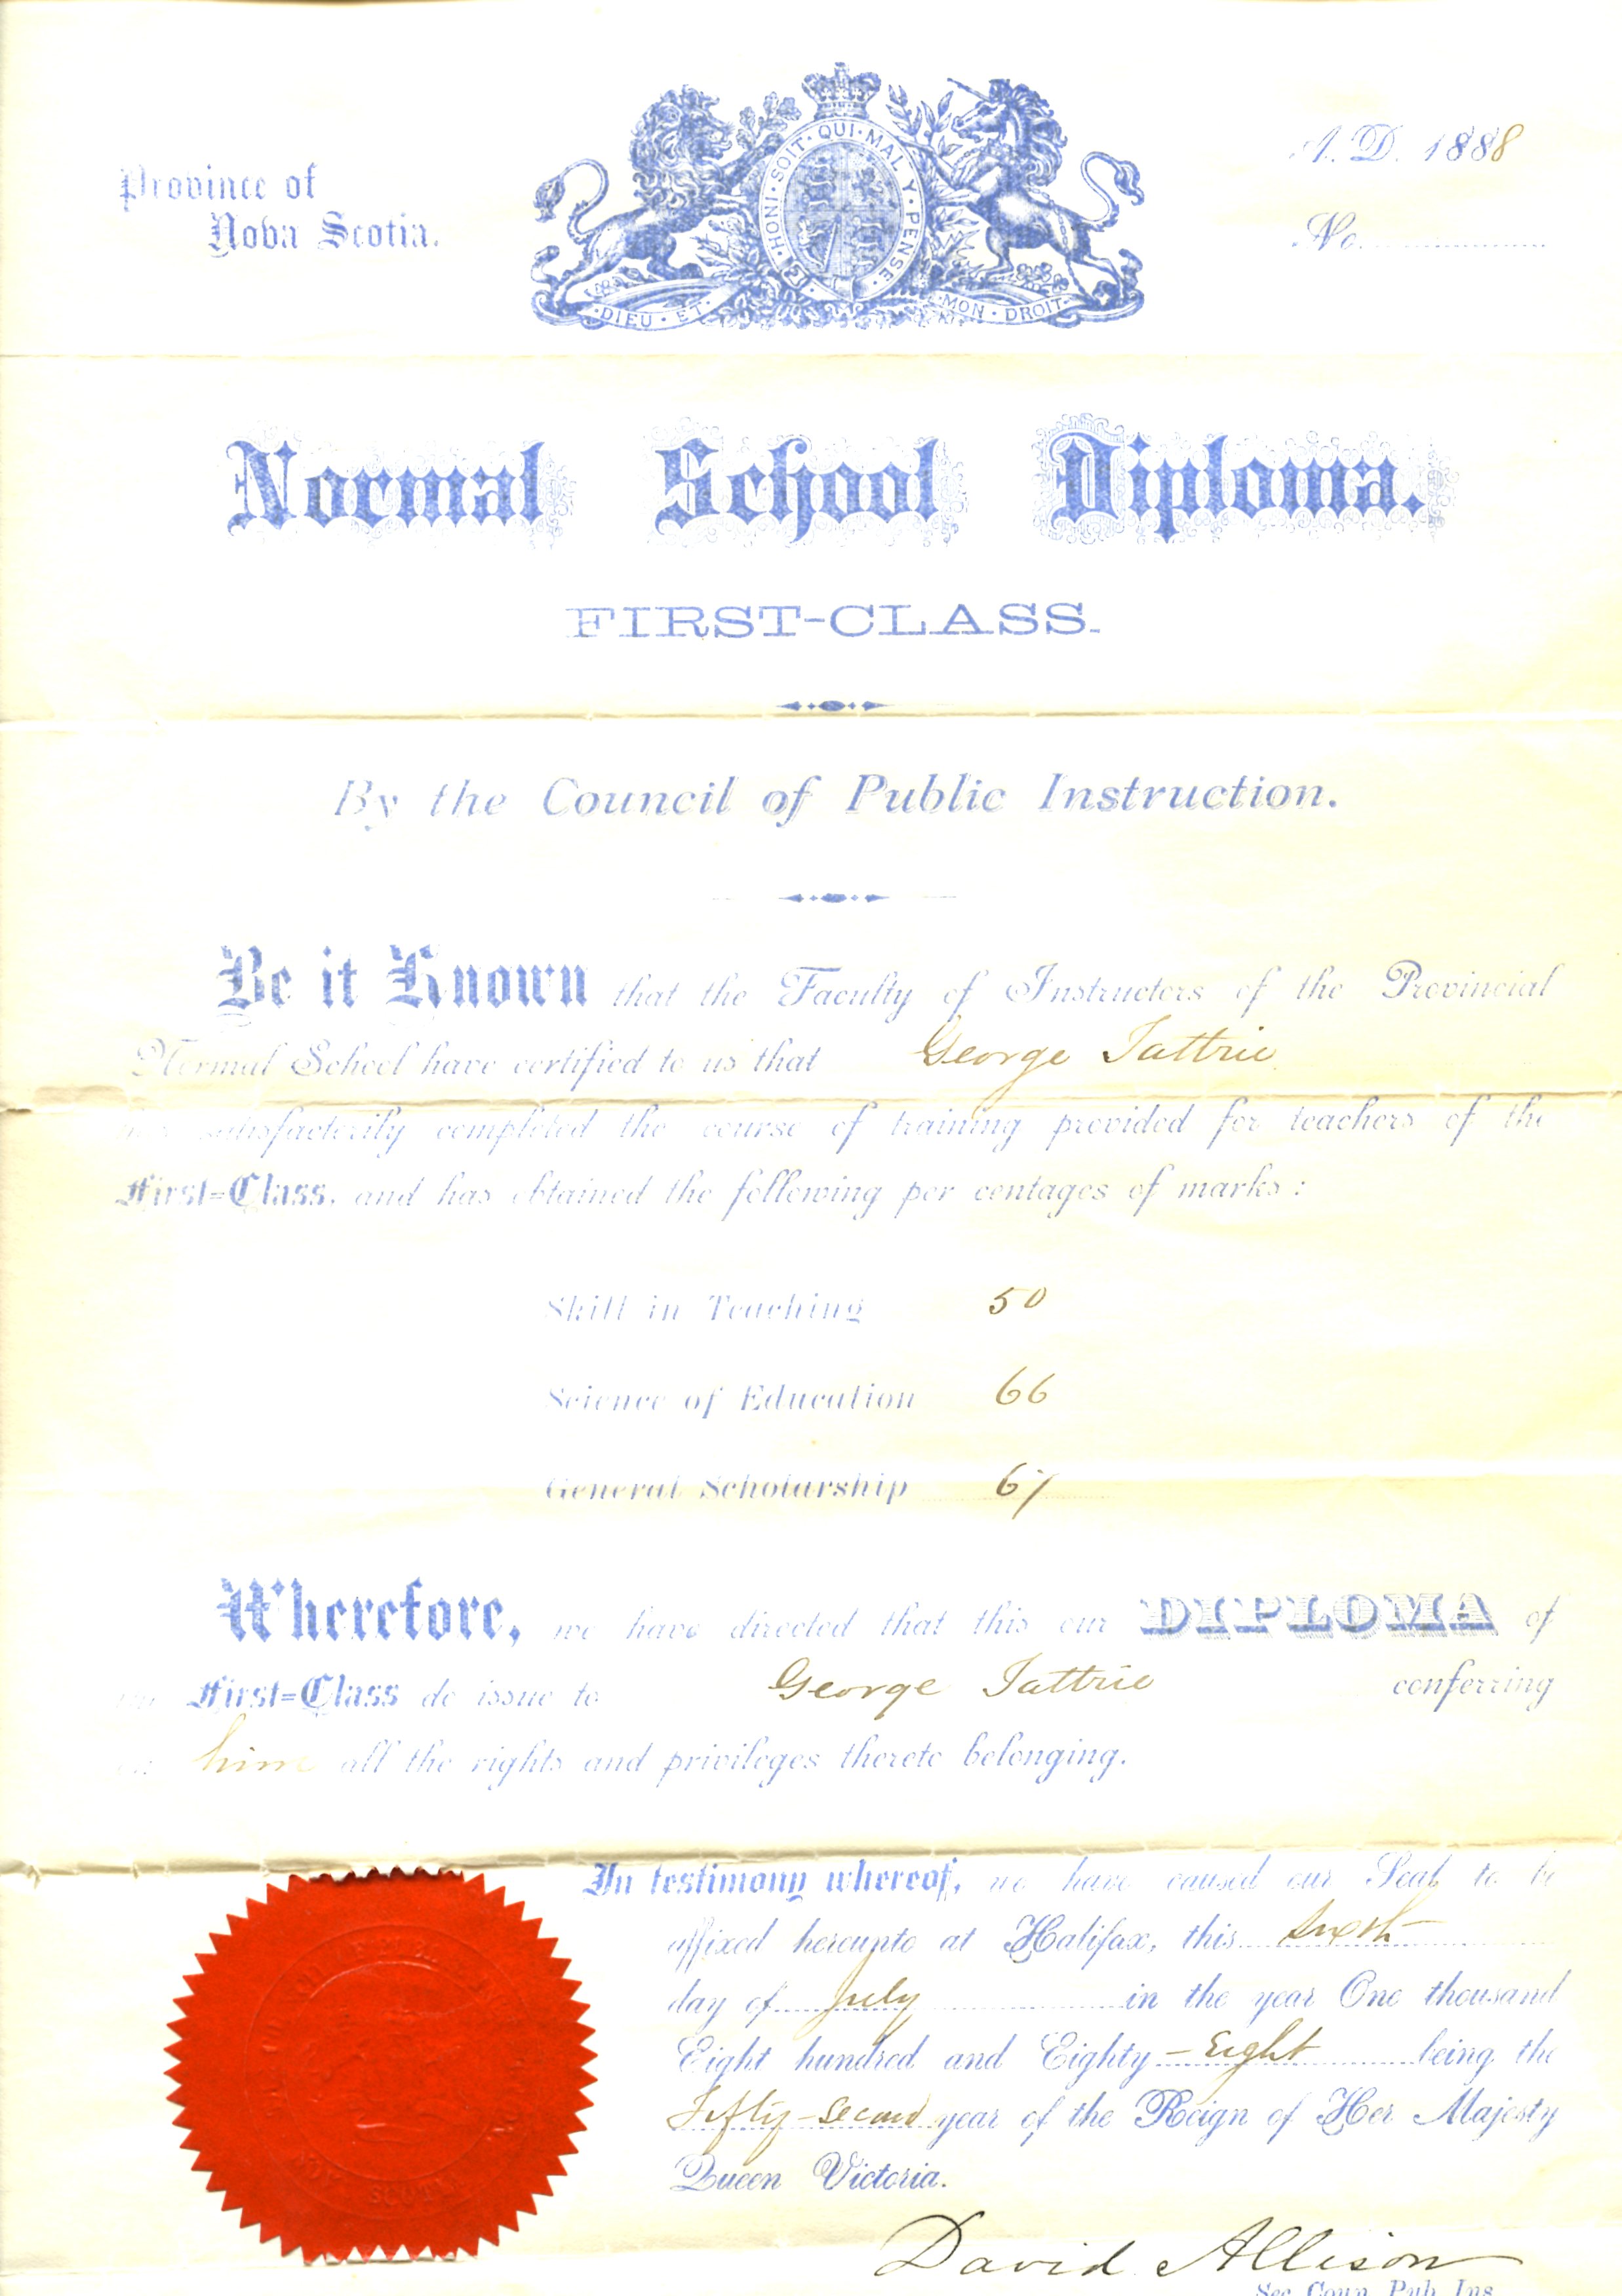 Province of
Nova Scotia.
HONI · SOIT · QUI · MAL · Y · PENSE
DIEU · ET · MON · DROIT ·
A. D. 1888
No.
Normal School Diploma.
FIRST-CLASS.
By the Council of Public Instruction.
Be it Known that the Faculty of Instructors of the Provincial
Normal School have certified to us that George Tattrie
has satisfactorily completed the course of training provided for teachers of the
First=Class, and has obtained the following per centages of marks:
Skill in Teaching 50
Science of Education 66
General Scholarship 67
Wherefore, we have directed that this our DIPLOMA of
the First=Class do issue to George Tattrie conferring
on him all the rights and privileges thereto belonging.
In testimony whereof, we have caused our Seal to be
affixed hereunto at Halifax, this sixth
day of July in the year One thousand
Eight hundred and Eighty-Eight being the
Fifty-second year of the Reign of Her Majesty
Queen Victoria.
David Allison
Sec. Coun. Pub. Ins.